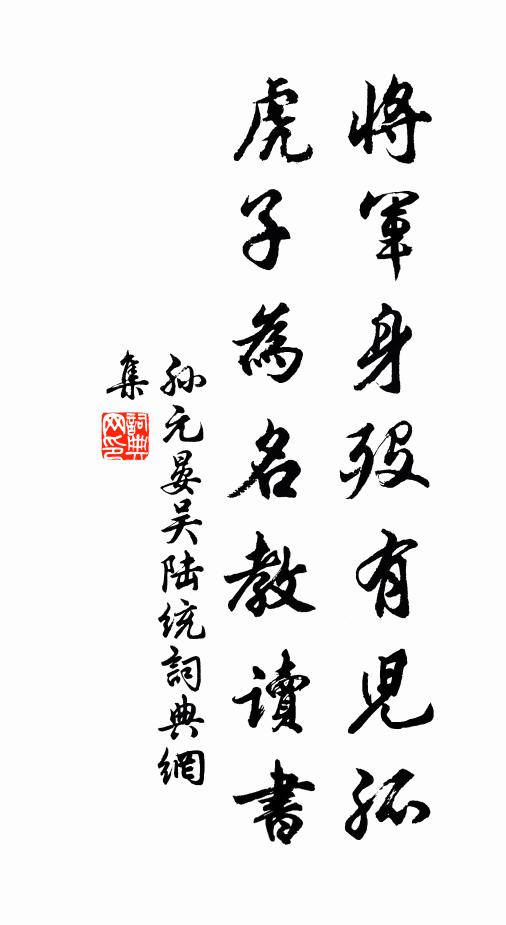 將軍身歿有兒孤
虎子為名教讀書
孙元晏吴陆统詞典網
集
詞典
网印